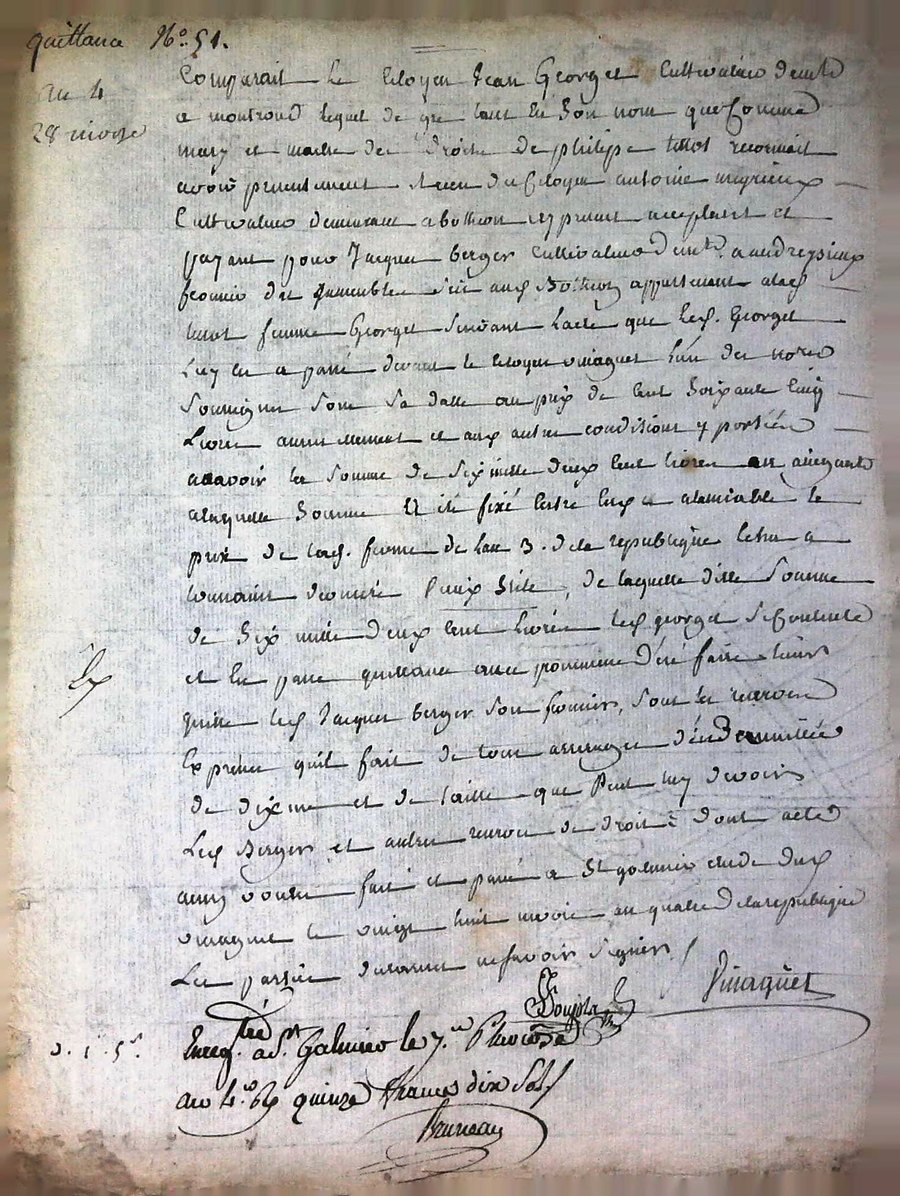 quittance N°. 51.
an 4
28 nivose
Comparait le Citoyen Jean Georget Cultivateur demt
a montrond lequel de gré tant en Son nom que Comme
mary et maitre des Droits de philipe tillot reconnait
avoir presentement Receu du Citoyen antoine
Cultivateur demeurant a bothéon ici present acceptant et
payant pour Jacques berger Cultivateur demt. a andrezieux
fermier des jmmeubles Sit aud Bothéon appartenant alad
tillot femme Georget Suivant lacte que led. Georget
Luy en a passé devant le Citoyen vinaguet l'un des notres
Soussignes Sous Sa datte au prix de Cent Soixante Cinq
Livres annuellement et aux autres conditions y portées
assavoir la Somme de Six mille deux Cent livres en
alaquelle Somme a été fixé Entre Eux a alamiable le
prix de lad. ferme de l'an 3. dela republique
de laquelle ditte Somme
de Six mille deux Cent livres led georget Se Contente
et En passe quittance avec promesse d'en faire tenir
quitte led Jacques berger Son fermier, Sous la reserve
Expresse quil fait de tous arrerages d'indemnitée
de dixme et de taille que Peut luy devoir
Led Berger et autres reserves de droit : dont acte
ainsy voulu fait et passé a St galmier etude dud
vinaguet le vingt huit nivose an quatre dela republique
Les parties declarent ne Savoir Signer /
Vinaguet
Enregtré a St. Galmier le 7.e Pluviose
an 4.e Rx quinze francs dix Sols
Bruneau